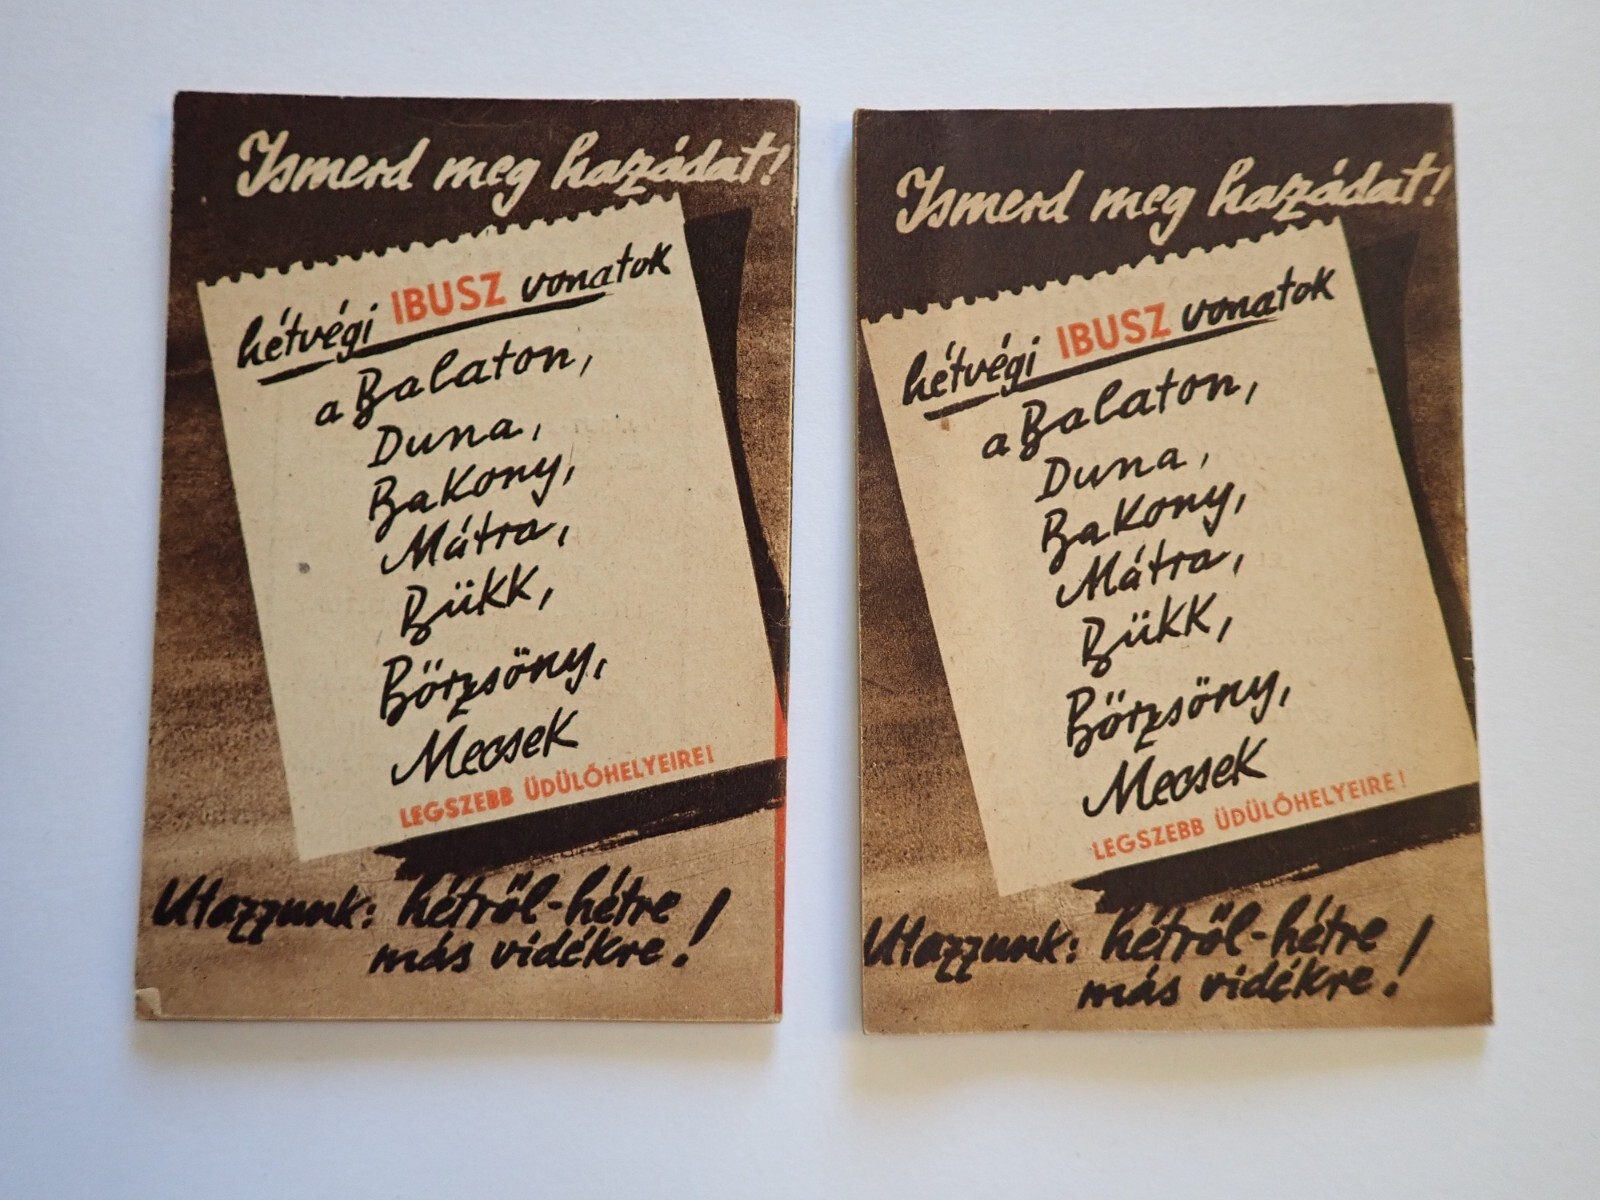 Ismerd meg hazádat!
hétvégi IBUSZ vonatok
a Balaton,
Duna,
Bakony,
Mátra,
Bükk,
Börzsöny,
Mecsek
LEGSZEBB ÜDÜLŐHELYEIRE!
Utazzunk: hétről-hétre
más vidékre!
Ismerd meg hazádat!
hétvégi IBUSZ vonatok
a Balaton,
Duna,
Bakony,
Mátra,
Bükk,
Börzsöny,
Mecsek
LEGSZEBB ÜDÜLŐHELYEIRE!
Utazzunk: hétről-hétre
más vidékre!